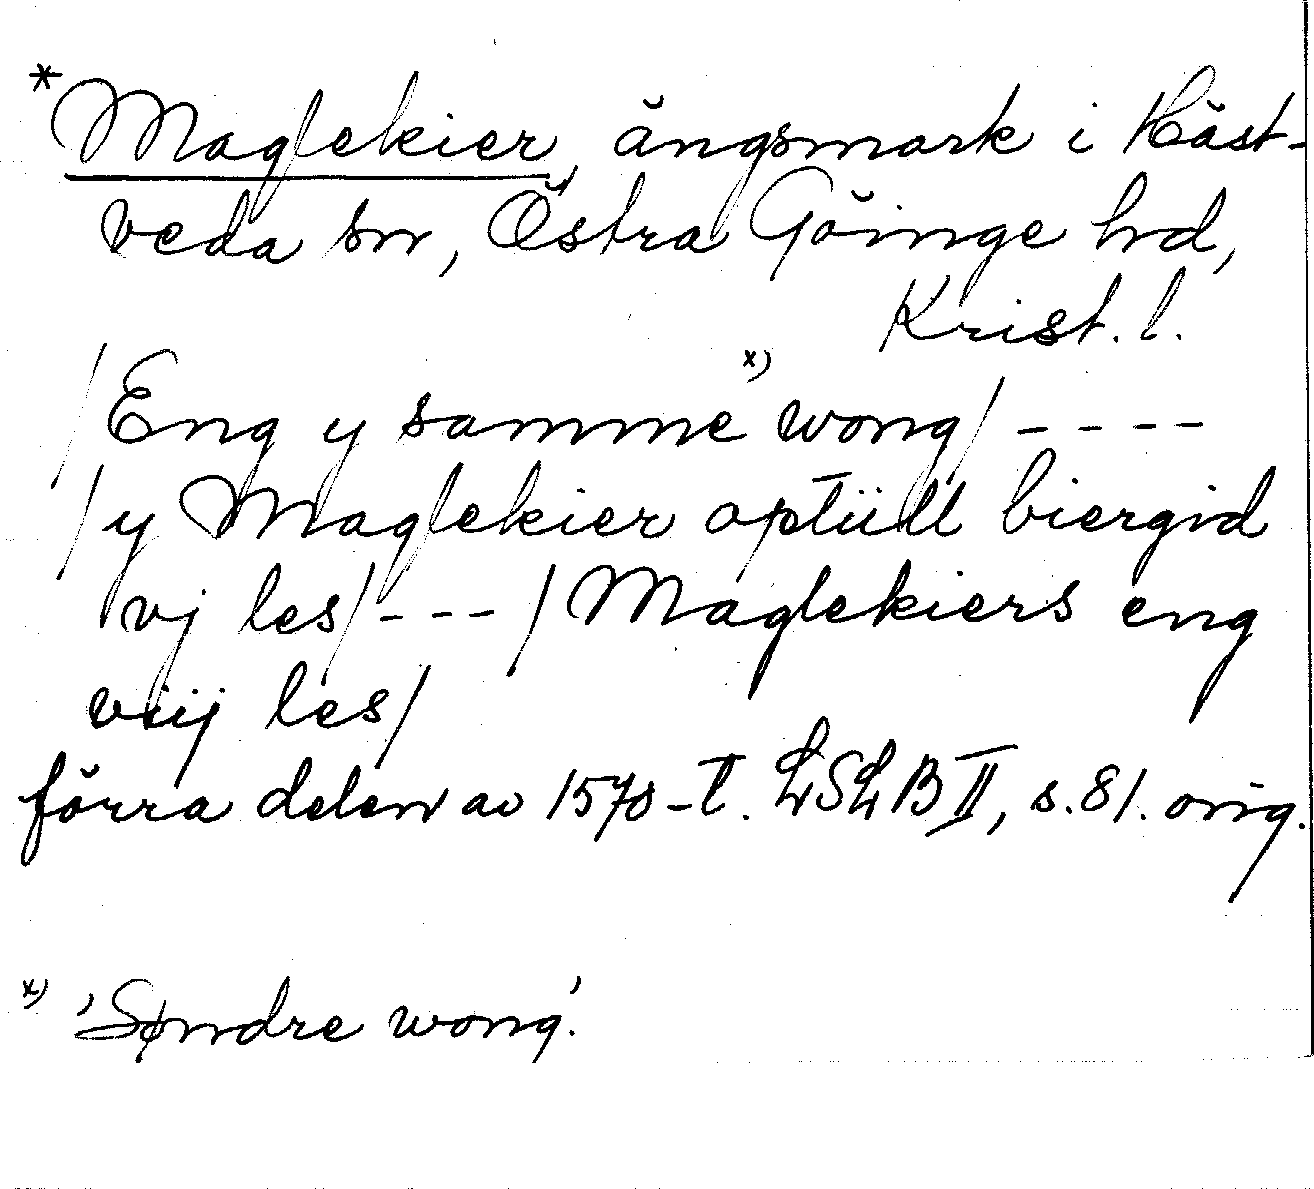 *Maglekier, ängsmark i Häst-
veda sn, Östra Göinge hd,
Krist. l.
/Eng y samme x) wong/ ----
/y Maglekier optüll biergid
vj les/ --- /Maglekiers eng
viij les/
förra delen av 1570-t. LSLB II, s. 81. orig.
x) 'Søndre wong'.